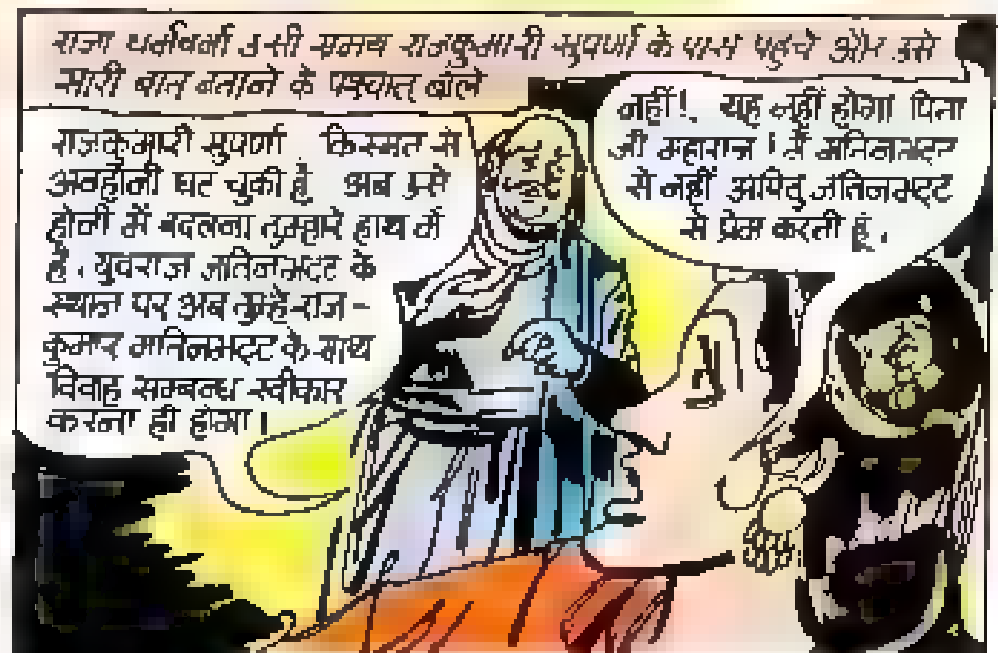 राजा धर्मवर्मा उसी समय राजकुमारी सुपर्णा के पास पहुंचे और उसे
सारी बात बताने के पश्चात् बोले
राजकुमारी सुपर्णा किस्मत से
अनहोनी घट चुकी है अब उसे
होनी में बदलना तुम्हारे हाथ में
है. युवराज जतिनभट्ट के
स्थान पर अब तुम्हें राज-
कुमार मतिनभट्ट के साथ
विवाह सम्बन्ध स्वीकार
करना ही होगा!
नहीं!. यह नहीं होगा पिता
जी महाराज! मैं मतिनभट्ट
से नहीं अपितु जतिनभट्ट
से प्रेम करती हूं.